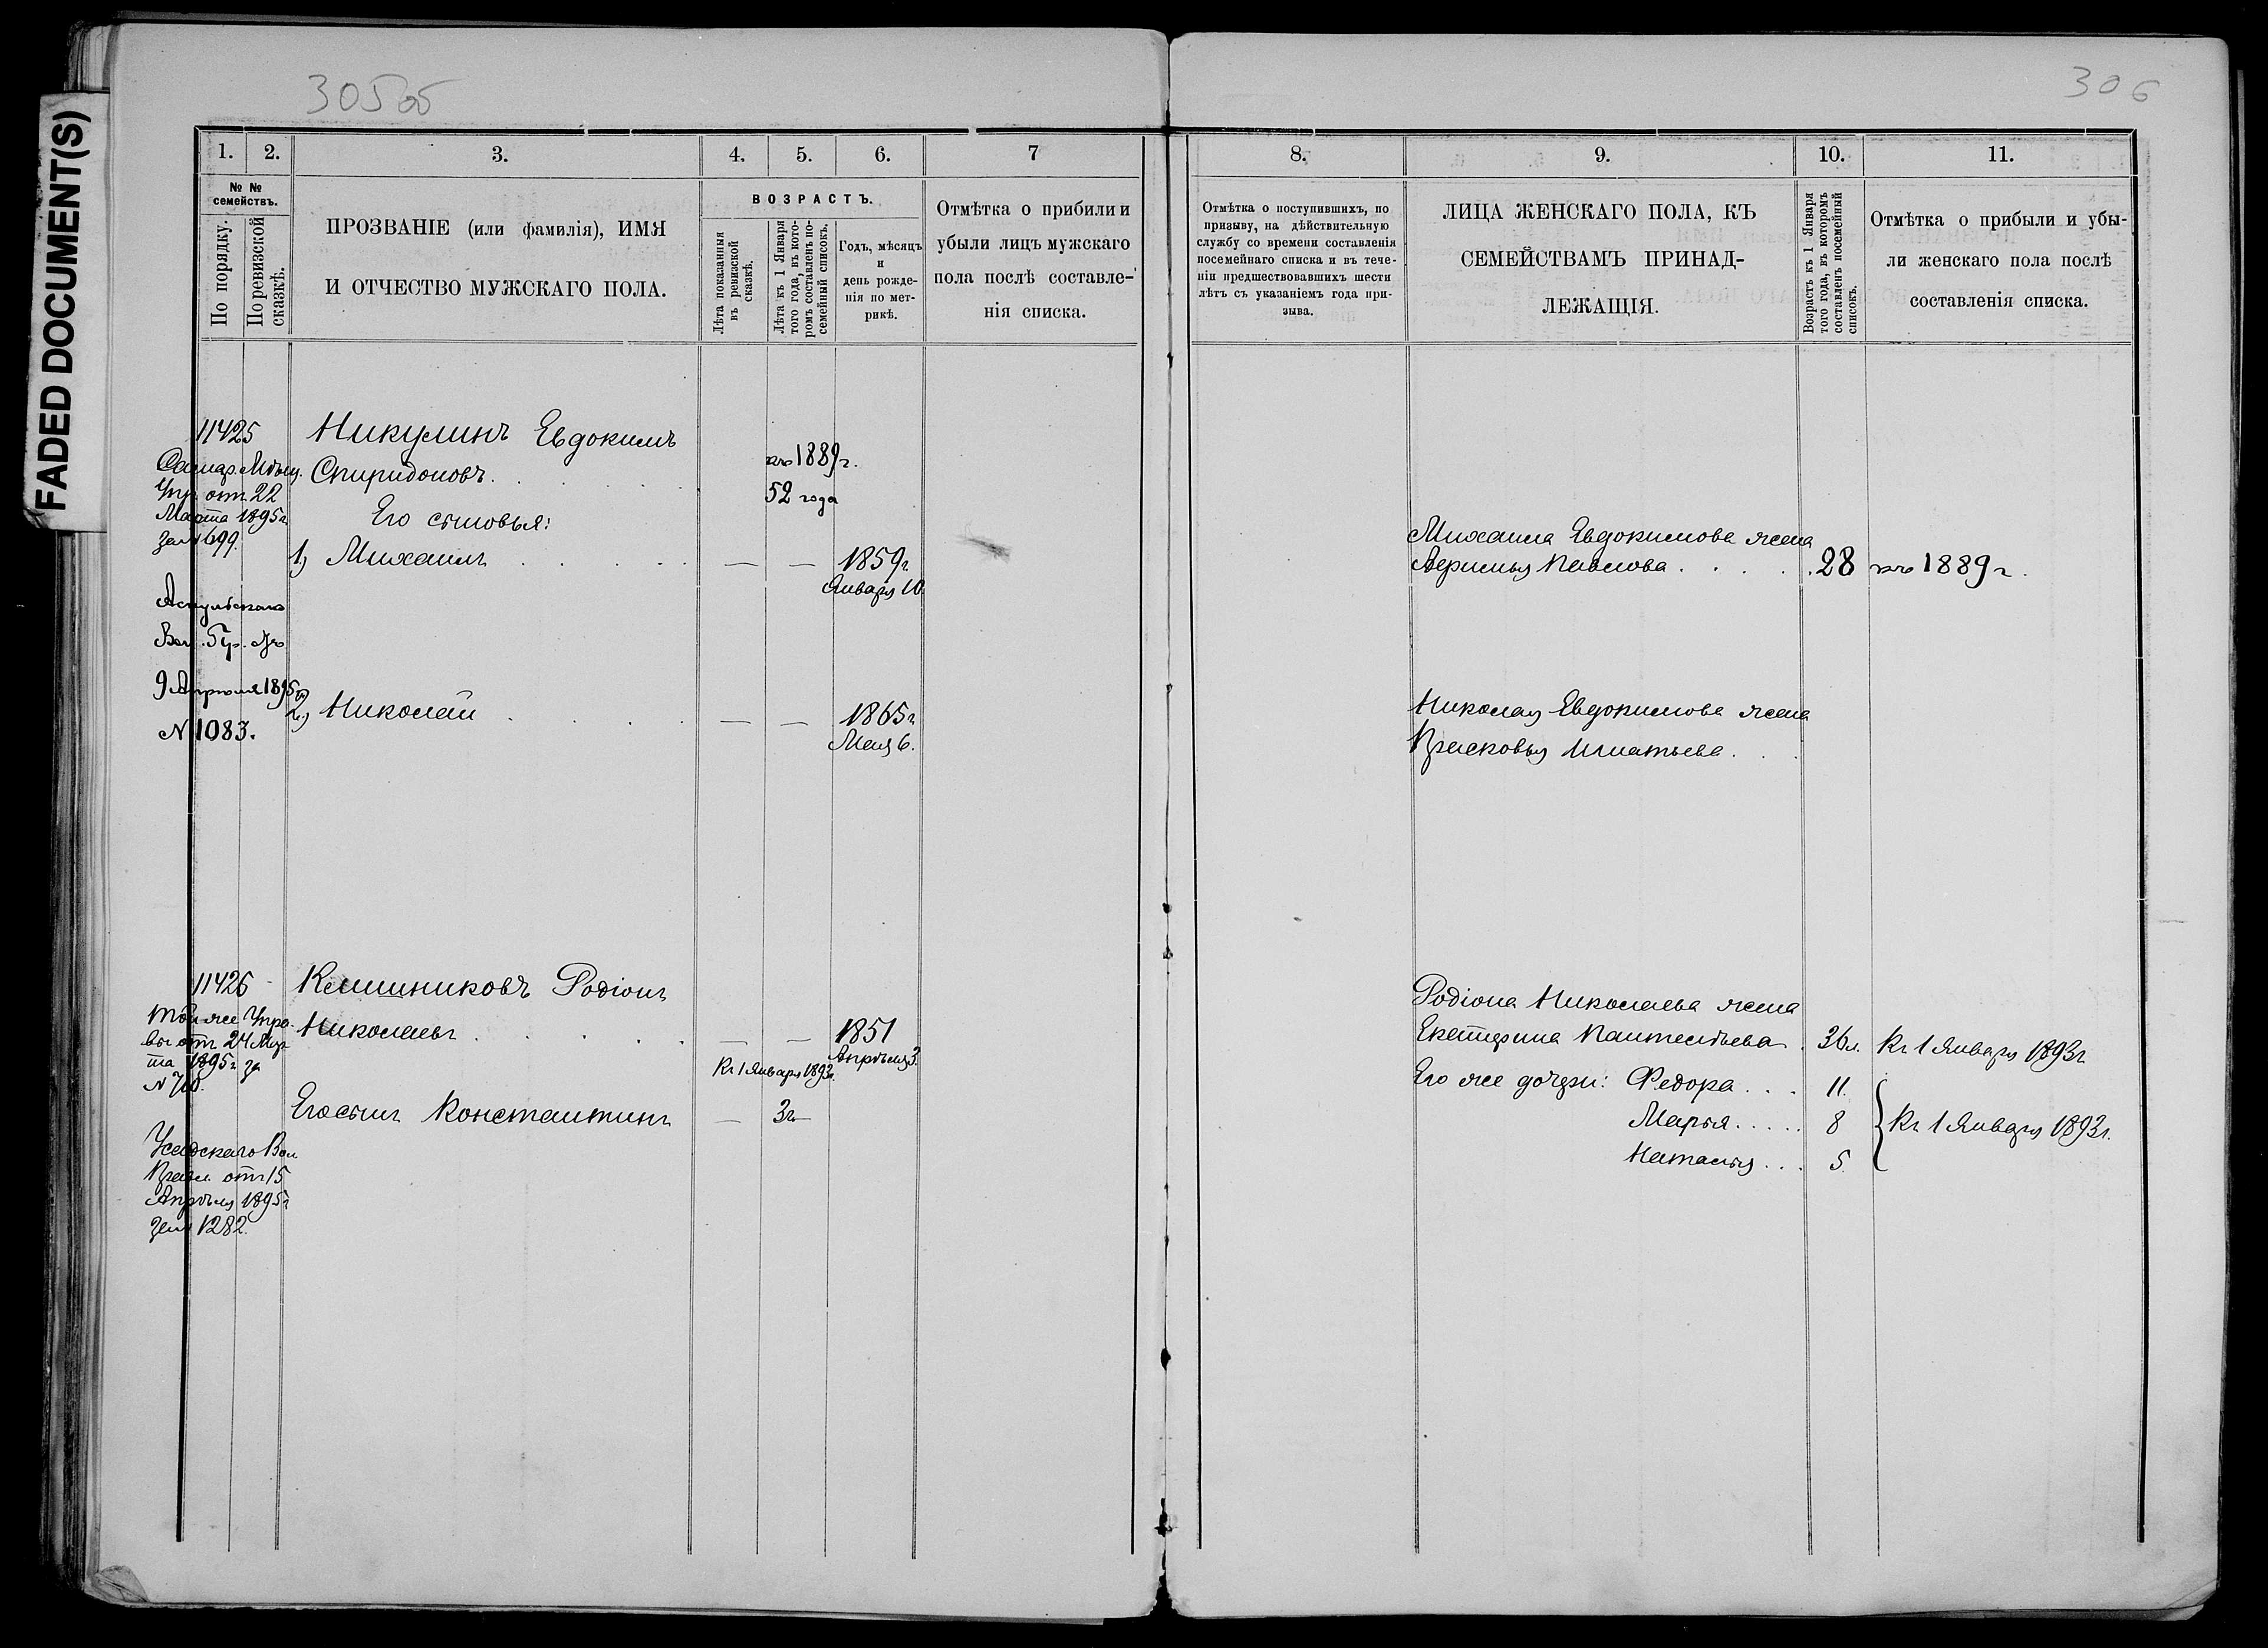 FADED DOCUMENT(S)
305об
306
1.
2.
3.
4.
5.
6.
7
№ №
семействъ.
По порядку.
По ревизской
сказкѣ.
ПРОЗВАНІЕ (или фамилія), ИМЯ
И ОТЧЕСТВО МУЖСКАГО ПОЛА.
ВОЗРАСТЪ.
Лѣта показанныя
въ ревизской
сказкѣ.
Лѣта къ 1 Января
того года, въ кото-
ромъ составленъ по-
семейный списокъ.
Годъ, мѣсяцъ
и
день рожде-
нія по мет-
рикѣ.
Отмѣтка о прибыли и
убыли лицъ мужскаго
пола послѣ составле-
нія списка.
11425
Самар. Мѣщ.
Упр. отъ 22
Марта 1895 г.
за № 699.
Вол. Пр. отъ
9 Апрѣля 1895 г.
№ 1083.
Никулинъ Евдокимъ
Спиридоновъ
Его сыновья:
1) Михаилъ
2) Николай
къ 1889 г.
52 года
— — 1859 г.
Января 10
— — 1865 г.
Мая 6.
11426
Той же Упра-
вы отъ 24 Мар-
та 1895 г. за
№ 710.
Вол
Правл. отъ 15
Апрѣля 1895 г.
за № 1282.
Родіонъ
Николаевъ
— — 1851
Апрѣля 3.
Къ 1 Января 1893 г.
Его сынъ Константинъ — 3 г. —
8.
9.
10.
11.
Отмѣтка о поступившихъ, по
призыву, на дѣйствительную
службу со времени составленія
посемейнаго списка и въ тече-
ніи предшествовавшихъ шести
лѣтъ съ указаніемъ года при-
зыва.
ЛИЦА ЖЕНСКАГО ПОЛА, КЪ
СЕМЕЙСТВАМЪ ПРИНАД-
ЛЕЖАЩІЯ.
Возрастъ къ 1 Января
того года, въ которомъ
составленъ посемейный
списокъ.
Отмѣтка о прибыли и убы-
ли женскаго пола послѣ
составленія списка.
Михаила Евдокимова жена
Павлова 28 къ 1889 г.
Николая Евдокимова жена
Прасковья Игнатьева
Родіона Николаева жена
Екатерина Пантелѣева 36 л. Къ 1 Января 1893 г.
Его же дочери: Федора 11.
Марья 8 Къ 1 Января 1893 г.
Наталья 5